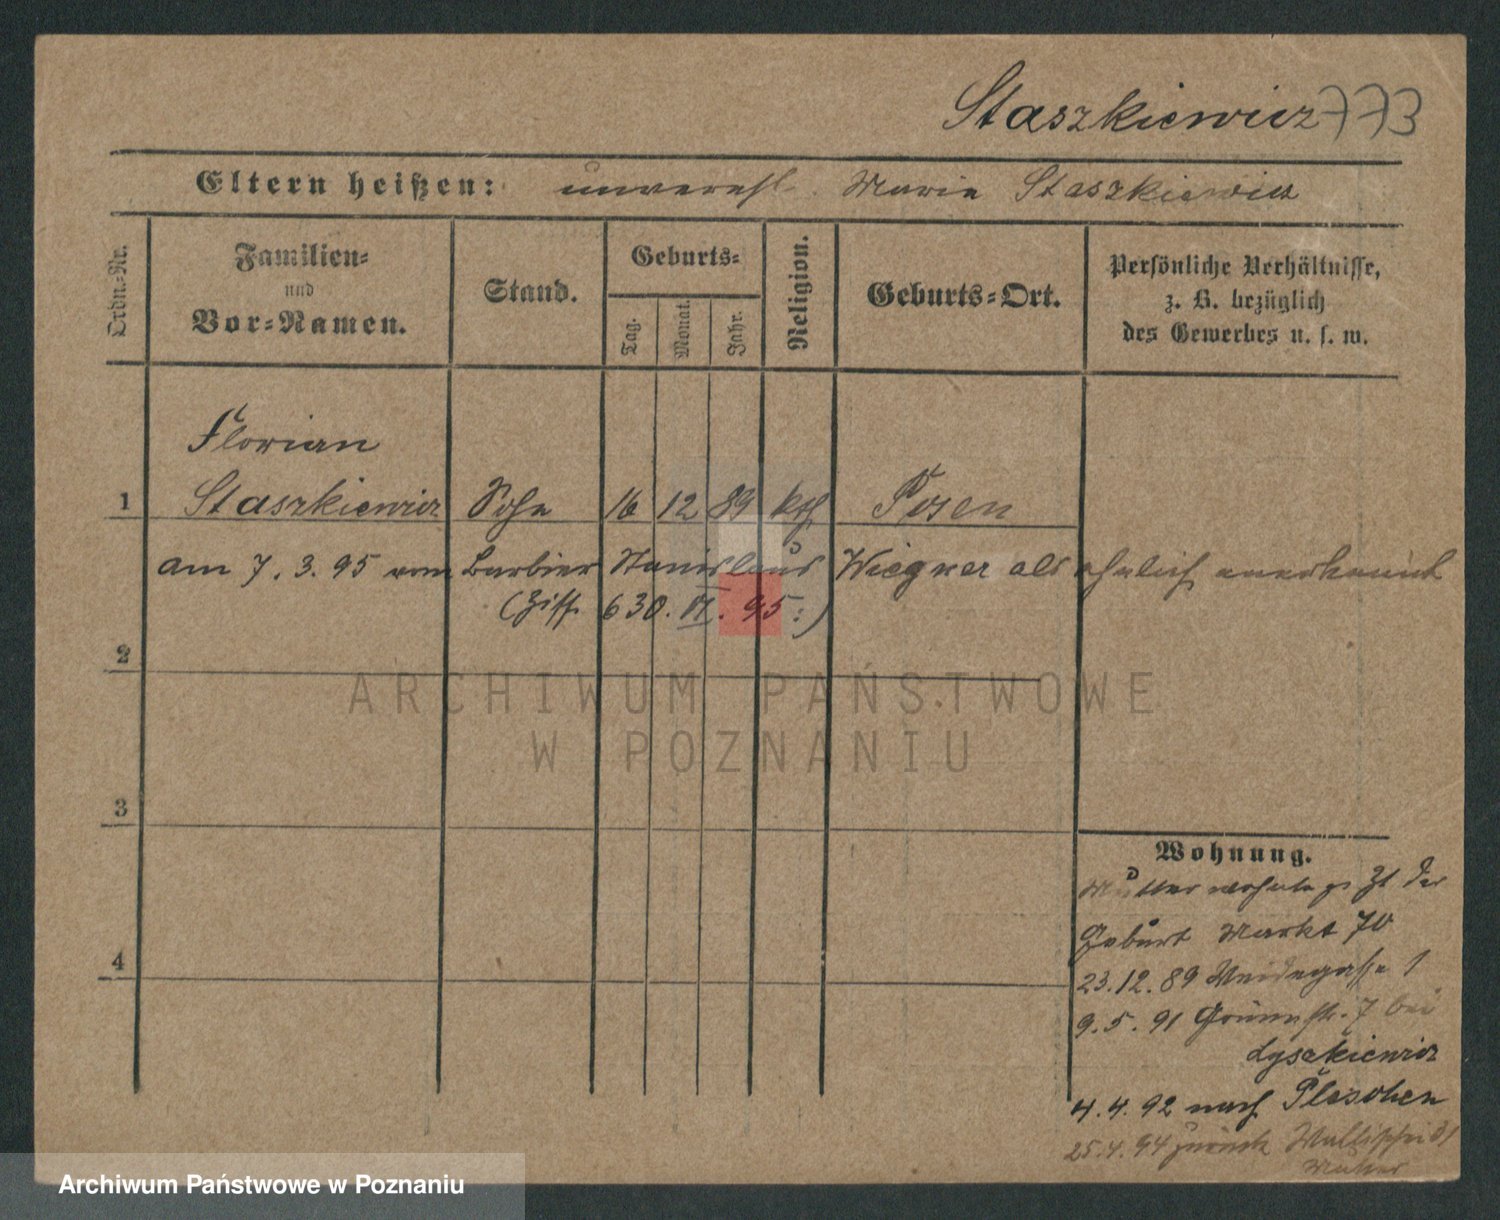 Staszkiewicz 773
Eltern heißen: unverehl. Marie Staszkiewicz
Ordn.-Nr.
Familien-
und
Vor-Namen.
Stand.
Geburts-
Tag.
Monat.
Jahr.
Religion.
Geburts-Ort.
Persönliche Verhältnisse,
z. B. bezüglich
des Gewerbes u. s. w.
Florian
1 Staszkiewicz Sohn 16 12 89 kth Posen
am 7. 3. 95 vom Barbier Stanislaus Wiegner als ehelich anerkannt
(Ziff. 630. VI. 95:)
2
3
4
Wohnung.
Mutter wohnte z. Zt der
Geburt Markt 70
23.12.89 Weidegasse 1
9.5.91 Grünestr. 7 bei
Lyszkiewicz
4.4.92 nach Pleschen
25.4.94 zurück Wallischei
ARCHIWUM PAŃSTWOWE
W POZNANIU
Archiwum Państwowe w Poznaniu